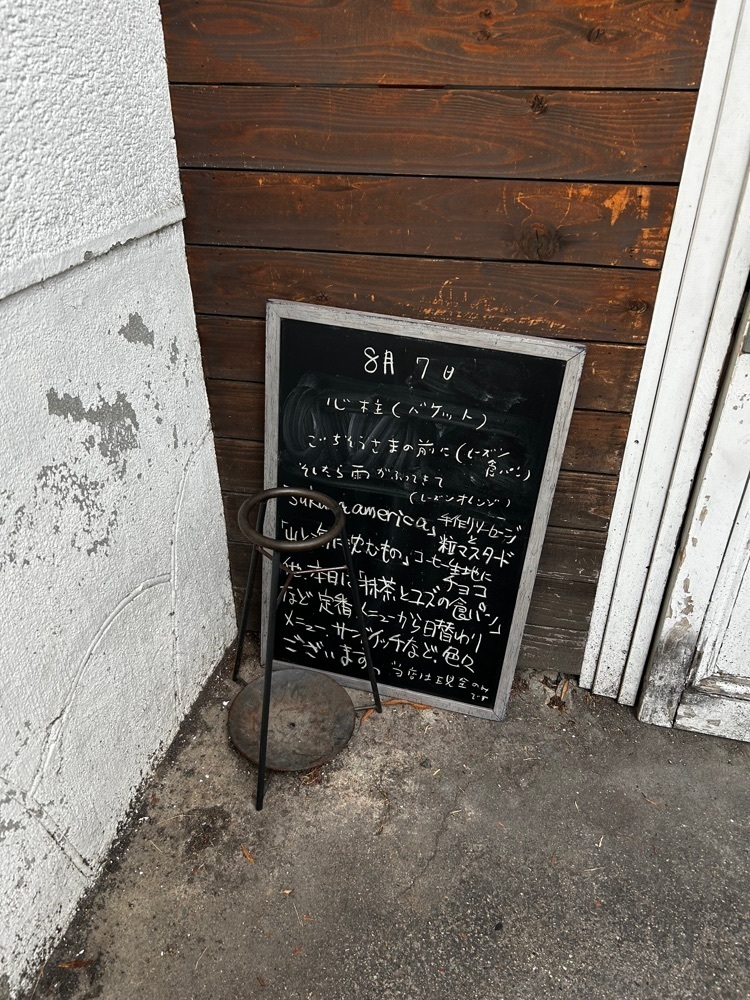 8月7日
心柱(バケット)
ごちそうさまの前に(レーズン食パン)
そしたら雨がふってきて
(レーズンオレンジ)
america」手作りソーセージと
粒マスタード
に沈むもの」コーヒー生地に
チョコ
他、本日は「抹茶とユズの食パン」
など定番メニューから日替わり
メニュー、サンドイッチなど、色々
ございます。当店は現金のみです